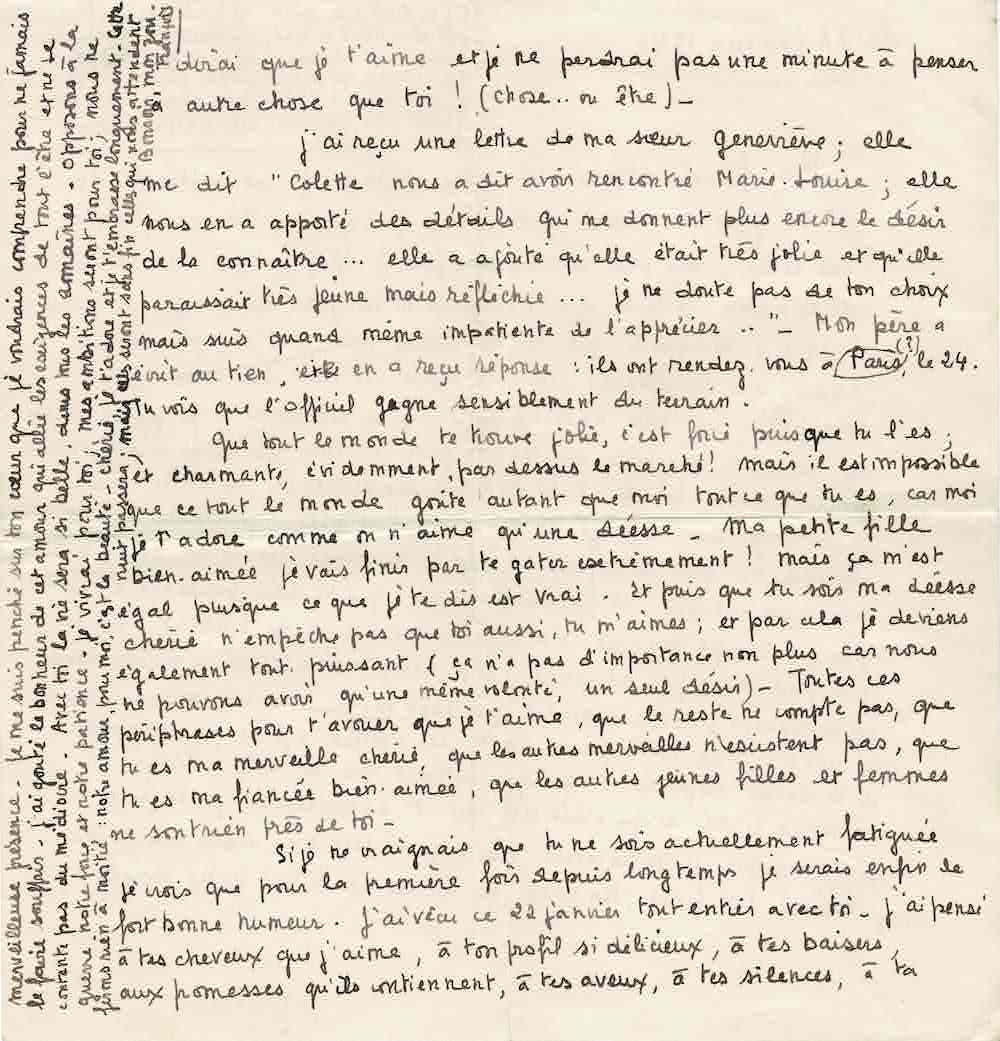 dirai que je t'aime et je ne perdrai pas une minute à penser
à autre chose que toi ! (chose.. ou être) _
j'ai reçu une lettre de ma sœur Geneviève ; elle
me dit " Colette nous a dit avoir rencontré Marie-Louise ; elle
nous en a apporté des détails qui me donnent plus encore le désir
de la connaître ... elle a ajouté qu'elle était très jolie et qu'elle
paraissait très jeune mais réfléchie ... je ne doute pas de ton choix
mais suis quand même impatiente de l'apprécier .. " _ Mon père a
écrit au tien, en a reçu réponse : ils ont rendez-vous à Paris (?), le 24.
Tu vois que l'officiel gagne sensiblement du terrain.
Que tout le monde te trouve jolie, c'est forcé puisque tu l'es ;
et charmante, évidemment, par dessus le marché ! Mais il est impossible
que ce tout le monde goûte autant que moi tout ce que tu es, car moi
je t'adore comme on n'aime qu'une déesse _ Ma petite fille
bien-aimée je vais finir par te gater extrêmement ! Mais ça m'est
égal puisque ce que je te dis est vrai. Et puis que tu sois ma déesse
chérie n'empêche pas que toi aussi, tu m'aimes ; et par cela je deviens
également tout-puissant (ça n'a pas d'importance non plus car nous
ne pouvons avoir qu'une même volonté, un seul désir) _ Toutes ces
périphrases pour t'avouer que je t'aime, que le reste ne compte pas, que
tu es ma merveille chérie, que les autres merveilles n'existent pas, que
tu es ma fiancée bien-aimée, que les autres jeunes filles et femmes
ne sont rien près de toi _
Si je ne craignais que tu ne sois actuellement fatiguée
je crois que pour la première fois depuis longtemps je serais enfin de
fort bonne humeur. J'ai vécu ce 22 janvier tout entier avec toi _ j'ai pensé
à tes cheveux que j'aime, à ton profil si délicieux, à tes baisers,
aux promesses qu'ils contiennent, à tes aveux, à tes silences, à ta
merveilleuse présence _ Je me suis penché sur ton cœur que je voudrais comprendre pour ne jamais
le faire souffrir _ j'ai goûté le bonheur de cet amour qui allie les exigences de tout l'être et ne se
contente pas du médiocre. Avec toi la vie sera si belle, dans tous les domaines. Opposons à la
guerre notre force et notre patience _ je vivrai pour toi, mes ambitions seront pour toi, nous ne
ferons rien à moitié : notre amour pour moi, c'est la beauté _ chérie, je t'adore et je t'embrasse longuement _ Cette
nuit passera, mais elles seront sans fin celles qui nous attendent
Bonsoir, mon Zou.
François